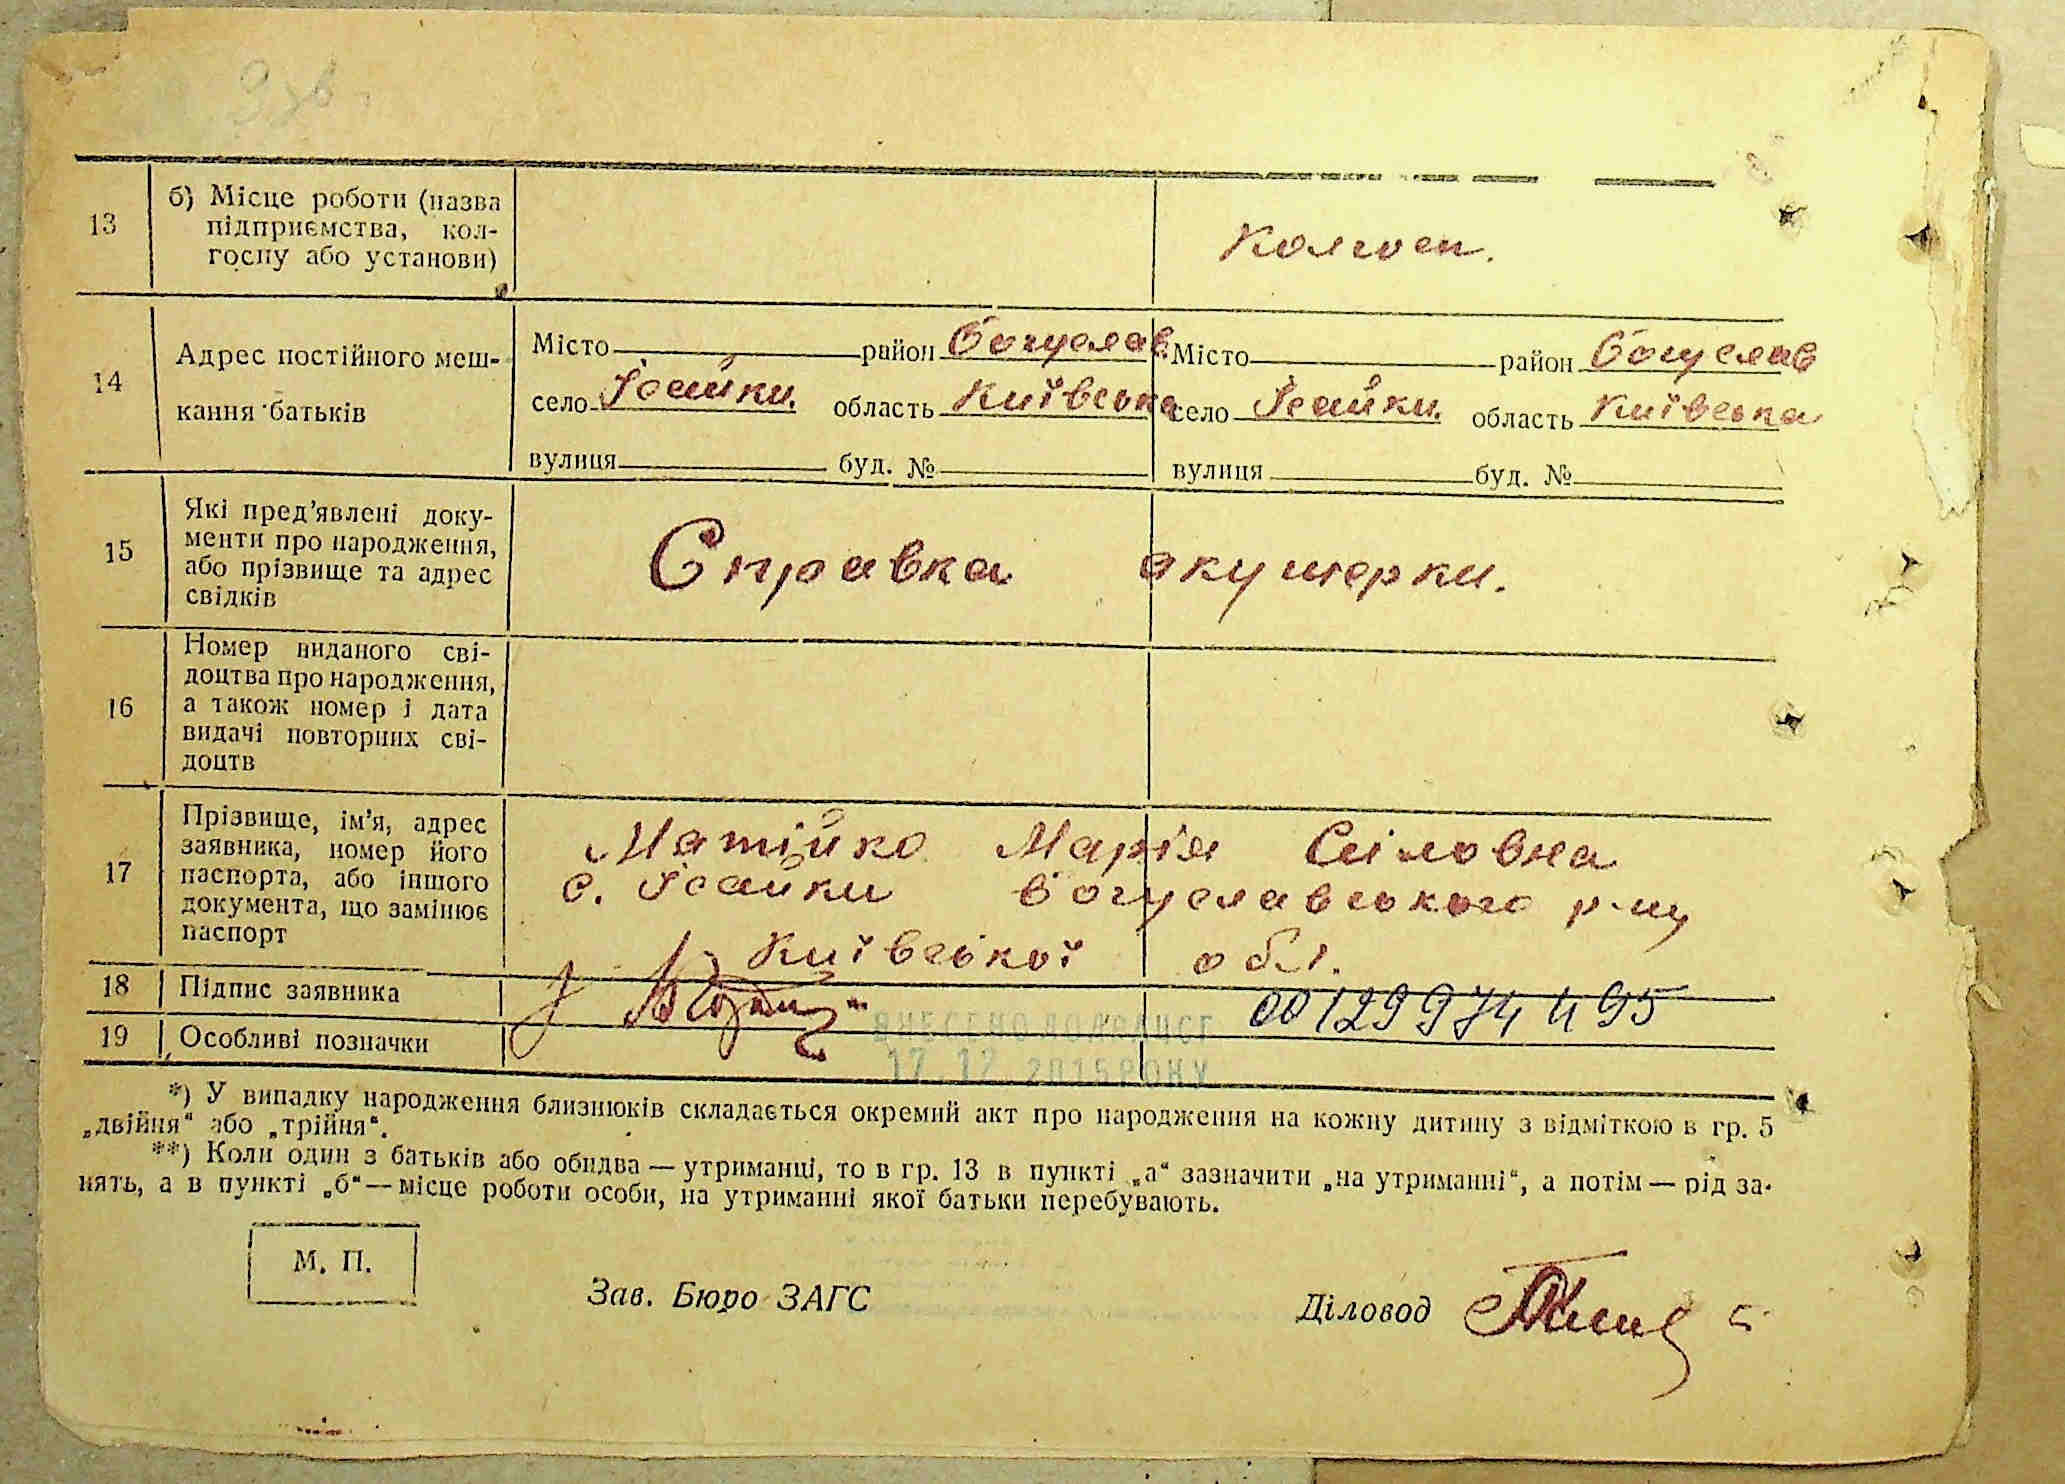 13
б) Місце роботи (назва
підприємства, кол-
госпу або установи)
Колгосп.
14
Адрес постійного меш-
кання батьків
Місто район Богуслав
село Ісайки. область Київська
вулиця буд. №
Місто район Богуслав
село Ісайки. область Київська
вулиця буд. №
15
Які пред'явлені доку-
менти про народження,
або прізвище та адрес
свідків
Справка акушерки.
16
Номер виданого сві-
доцтва про народження,
а також номер і дата
видачі повторних сві-
доцтв
17
Прізвище, ім'я, адрес
заявника, номер його
паспорта, або іншого
документа, що замінює
паспорт
Матійко Марія Сіловна
с. Ісайки Богуславського р-ну
Київської обл.
18
Підпис заявника
00129974495
19
Особливі позначки
ВНЕСЕНО ДО ДРАЦСГ
17.12 2015 РОКУ
*) У випадку народження близнюків складається окремий акт про народження на кожну дитину з відміткою в гр. 5
„двійня“ або „трійня“.
**) Коли один з батьків або обидва — утриманці, то в гр. 13 в пункті „а“ зазначити „на утриманні“, а потім — рід за-
нять, а в пункті „б“ — місце роботи особи, на утриманні якої батьки перебувають.
М. П.
Зав. Бюро ЗАГС
Діловод